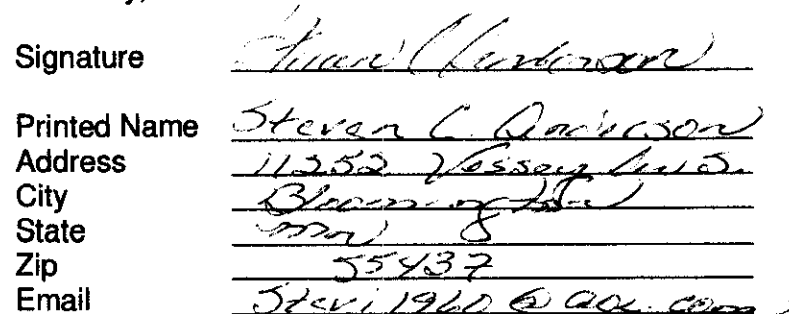 Signature Steven C Anderson
Printed Name Steven C. Anderson
Address 11252 Vessey Av S.
City Bloomington
State mn
Zip 55437
Email Stevi1960@aol.com